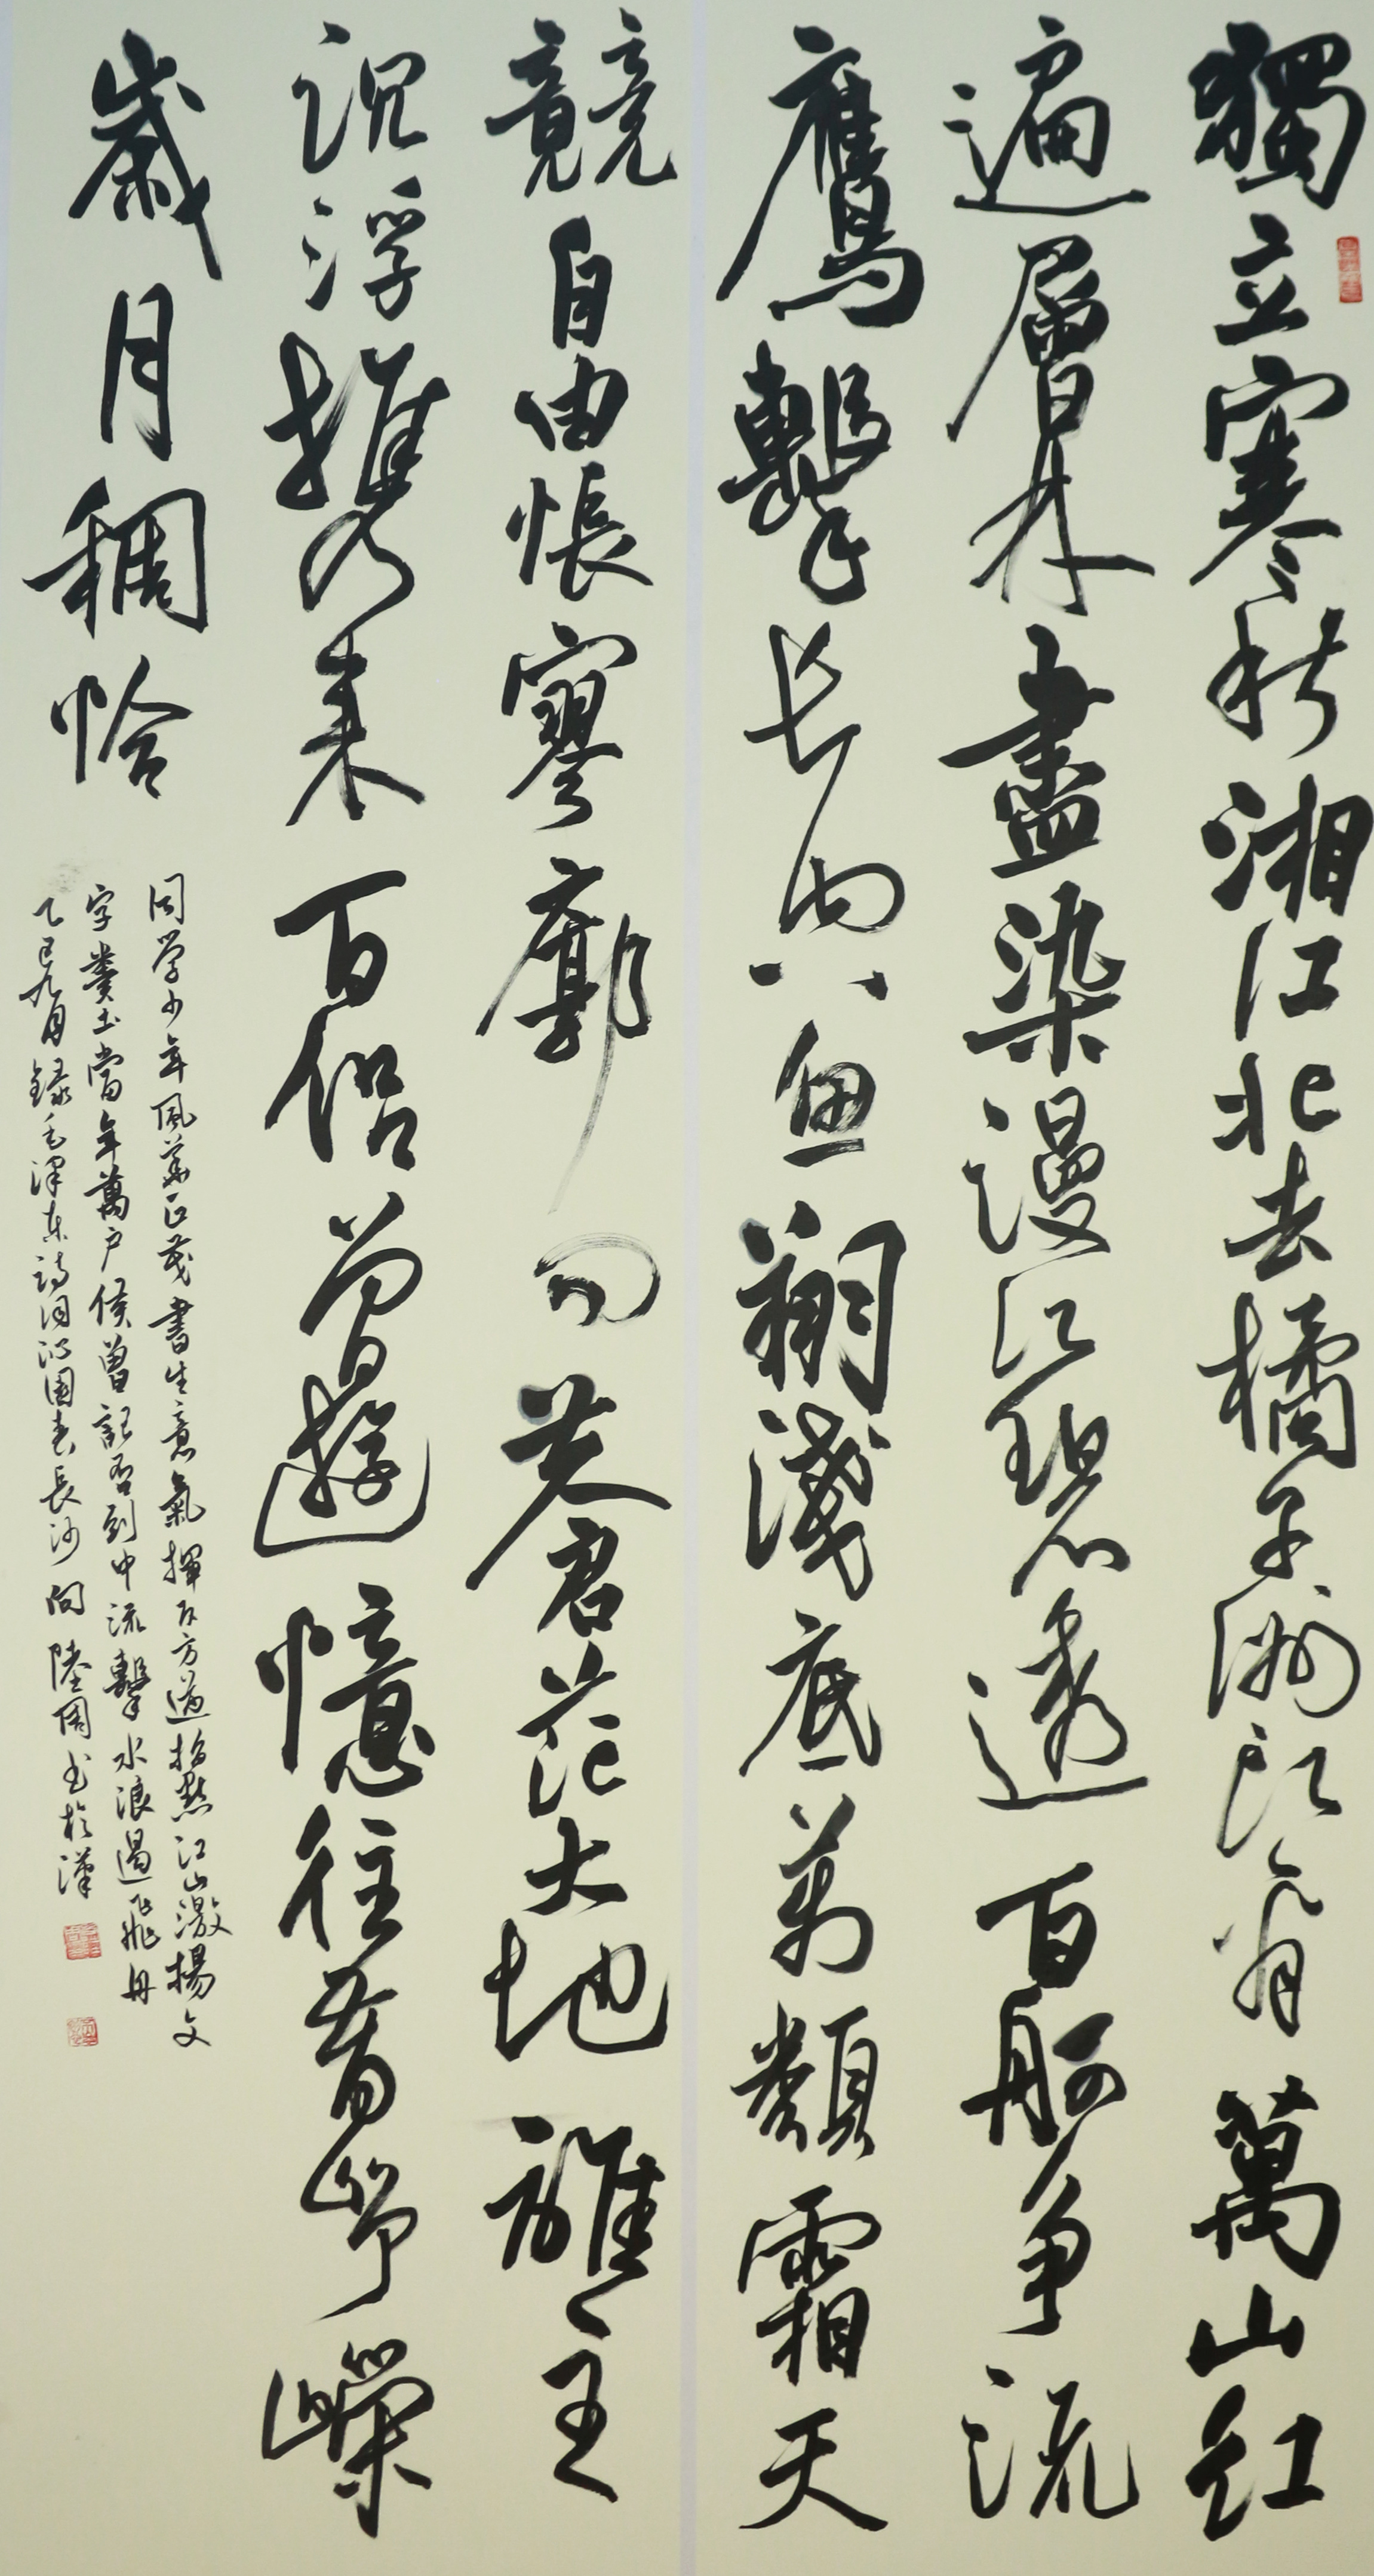 獨立寒秋湘江北去橘子洲頭看萬山红
遍層林盡染漫江碧透百舸争流
鷹擊长空魚翔淺底萬類霜天
競自由悵寥廓問蒼茫大地誰主
沉浮携来百侣曾遊憶往昔峥嶸
歲月稠恰
同学少年風華正茂書生意氣揮斥方遒指點江山激揚文
字糞土當年萬户侯曾記否到中流擊水浪遏飛舟
乙巳九月録毛澤东詩词沁園春長沙 向陸周书於漢